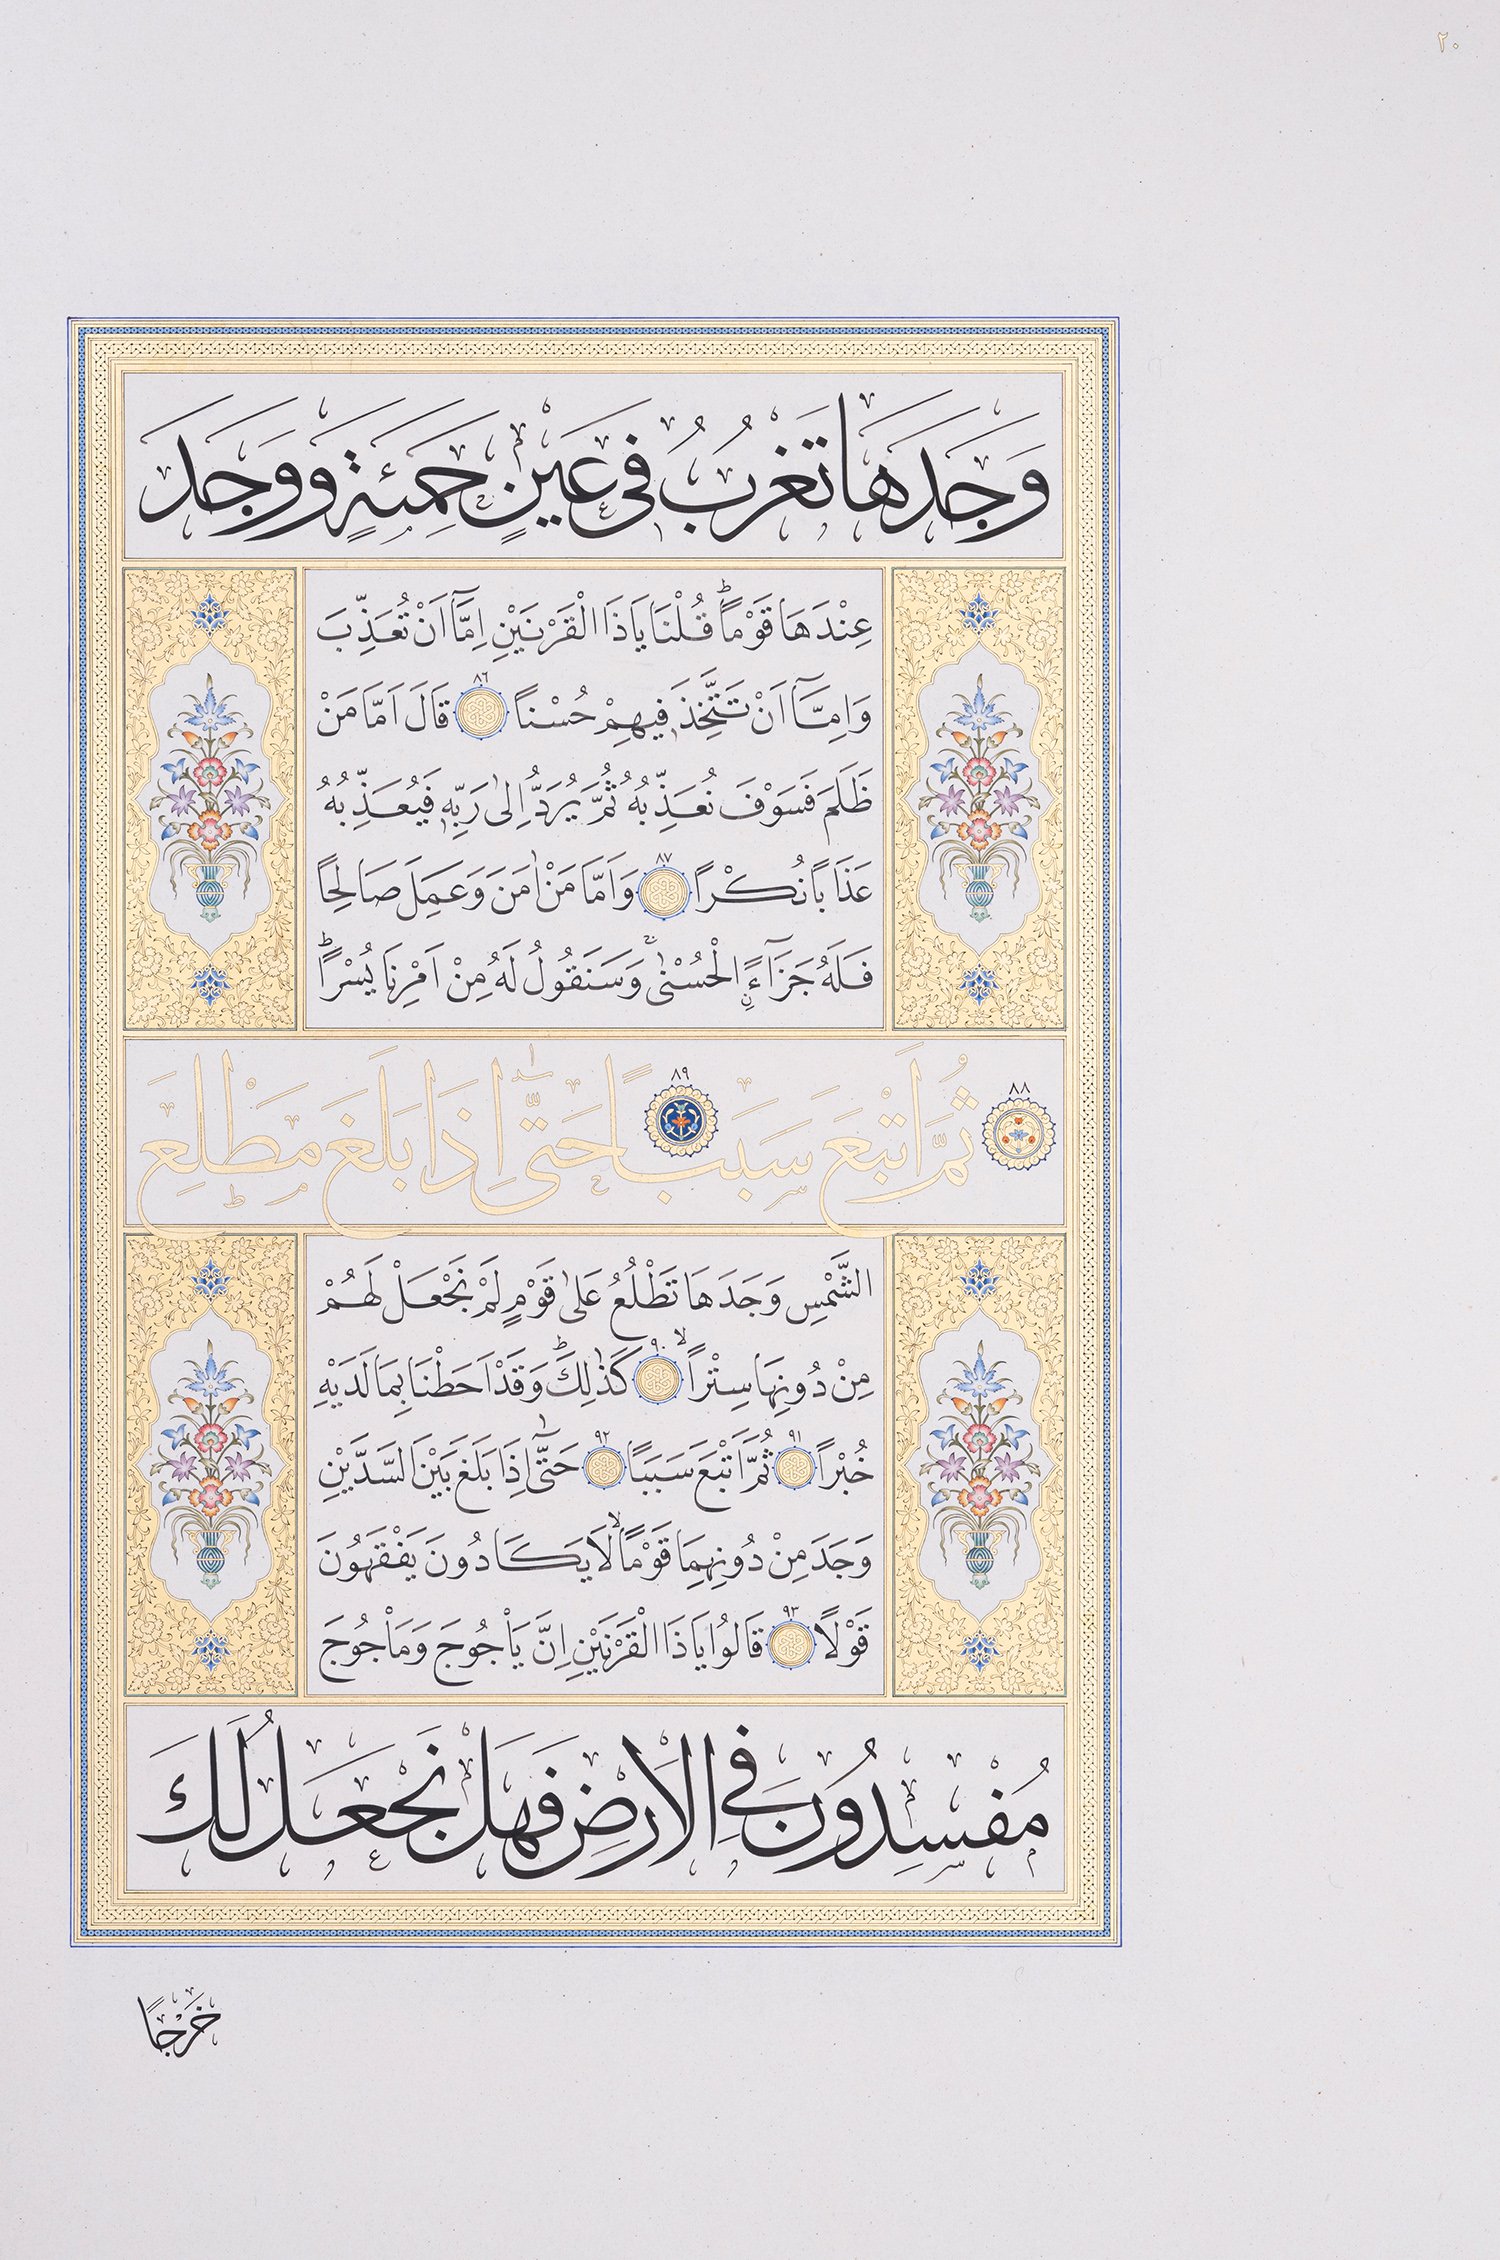 ٢٠
وَجَدَهَا تَغْرُبُ فِى عَيْنٍ حَمِئَةٍ وَوَجَدَ
عِنْدَهَا قَوْمًاۜ قُلْنَا يَا ذَا الْقَرْنَيْنِ اِمَّٓا اَنْ تُعَذِّبَ
وَاِمَّٓا اَنْ تَتَّخِذَ فِيهِمْ حُسْنًا ٨٦ قَالَ اَمَّا مَنْ
ظَلَمَ فَسَوْفَ نُعَذِّبُهُ ثُمَّ يُرَدُّ اِلٰى رَبِّهٖ فَيُعَذِّبُهُ
عَذَابًا نُكْرًا ٨٧ وَاَمَّا مَنْ اٰمَنَ وَعَمِلَ صَالِحًا
فَلَهُ جَزَٓاءًۨ الْحُسْنٰىۚ وَسَنَقُولُ لَهُ مِنْ اَمْرِنَا يُسْرًاۜ
٨٨ ثُمَّ اَتْبَعَ سَبَبًا ٨٩ حَتّٰٓى اِذَا بَلَغَ مَطْلِعَ
الشَّمْسِ وَجَدَهَا تَطْلُعُ عَلٰى قَوْمٍ لَمْ نَجْعَلْ لَهُمْ
مِنْ دُونِهَا سِتْرًاۙ ٩٠ كَذٰلِكَۜ وَقَدْ اَحَطْنَا بِمَا لَدَيْهِ
خُبْرًا ٩١ ثُمَّ اَتْبَعَ سَبَبًا ٩٢ حَتّٰٓى اِذَا بَلَغَ بَيْنَ السَّدَّيْنِ
وَجَدَ مِنْ دُونِهِمَا قَوْمًاۙ لَا يَكَادُونَ يَفْقَهُونَ
قَوْلًا ٩٣ قَالُوا يَا ذَا الْقَرْنَيْنِ اِنَّ يَأْجُوجَ وَمَأْجُوجَ
مُفْسِدُونَ فِى الْاَرْضِ فَهَلْ نَجْعَلُ لَكَ
خَرْجًا